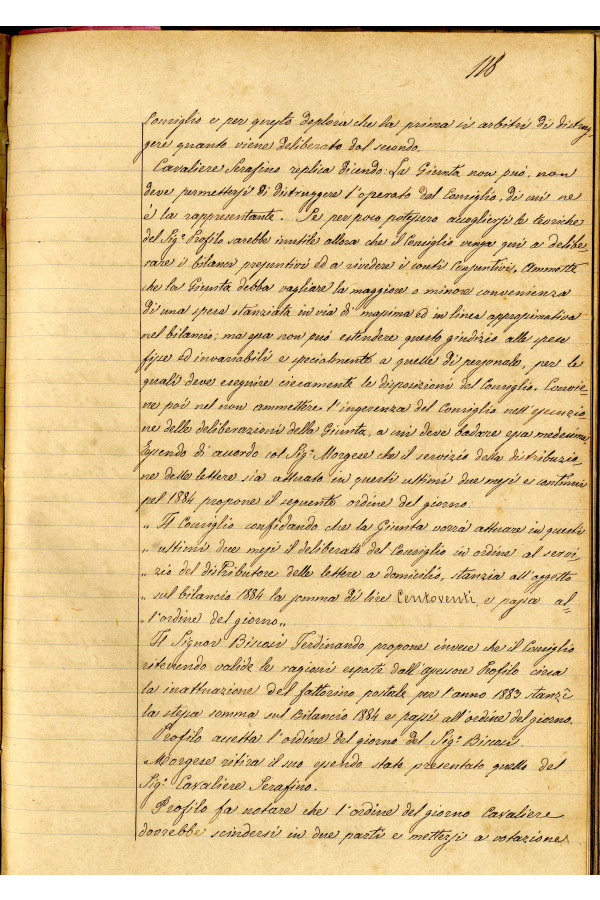 118
Consiglio e per questo deplora che la prima si arbitri di distrug-
gere quanto viene deliberato dal secondo.
Cavaliere Serafino replica dicendo: La Giunta non può, non
deve permettersi di distruggere l'operato del Consiglio, di cui ne
è la rappresentante. Se per poco potessero accogliersi le teoriche
del Sig.r Profilo sarebbe inutile allora che il Consiglio venga qui a delibe
rare i bilanci preventivi ed a rivedere i conti Consuntivi. Ammette
che la Giunta debba vagliare la maggiore o minore convenienza
di una spesa stanziata in via di massima ed in linea approssimativa
nel bilancio; ma essa non può estendere questo giudizio alle spese
fisse ed invariabili e specialmente a quelle di personale, per le
quali deve eseguire ciecamente le disposizioni del Consiglio. Convie-
ne poi nel non ammettere l'ingerenza del Consiglio nell'esecuzio
ne delle deliberazioni della Giunta, a cui deve badare essa medesima
Essendo di accordo col Sig.r Morgese che il servizio della distribuzio-
ne delle lettere sia attuato in questi ultimi due mesi e continui
pel 1884 propone il seguente ordine del giorno:
„ Il Consiglio confidando che la Giunta vorrà attuare in questi
„ ultimi due mesi il deliberato del Consiglio in ordine al servi
„ zio del distributore delle lettere a domicilio, stanzia all'oggetto
„ sul bilancio 1884 la somma di lire Centoventi, e passa al-
„ l'ordine del giorno„
Il Signor Bissosi Ferdinando propone invece che il Consiglio
ritenendo valide le ragioni esposte dall'assessore Profilo circa
la inattuazione del fattorino postale per l'anno 1883 stanzî
la stessa somma sul Bilancio 1884 e passi all'ordine del giorno.
Profilo accetta l'ordine del giorno del Sig.r Bissosi.
Morgese ritira il suo essendo stato presentato quello del
Sig.r Cavaliere Serafino.
Profilo fa notare che l'ordine del giorno Cavaliere
dovrebbe scindersi in due parti e mettersi a votazione